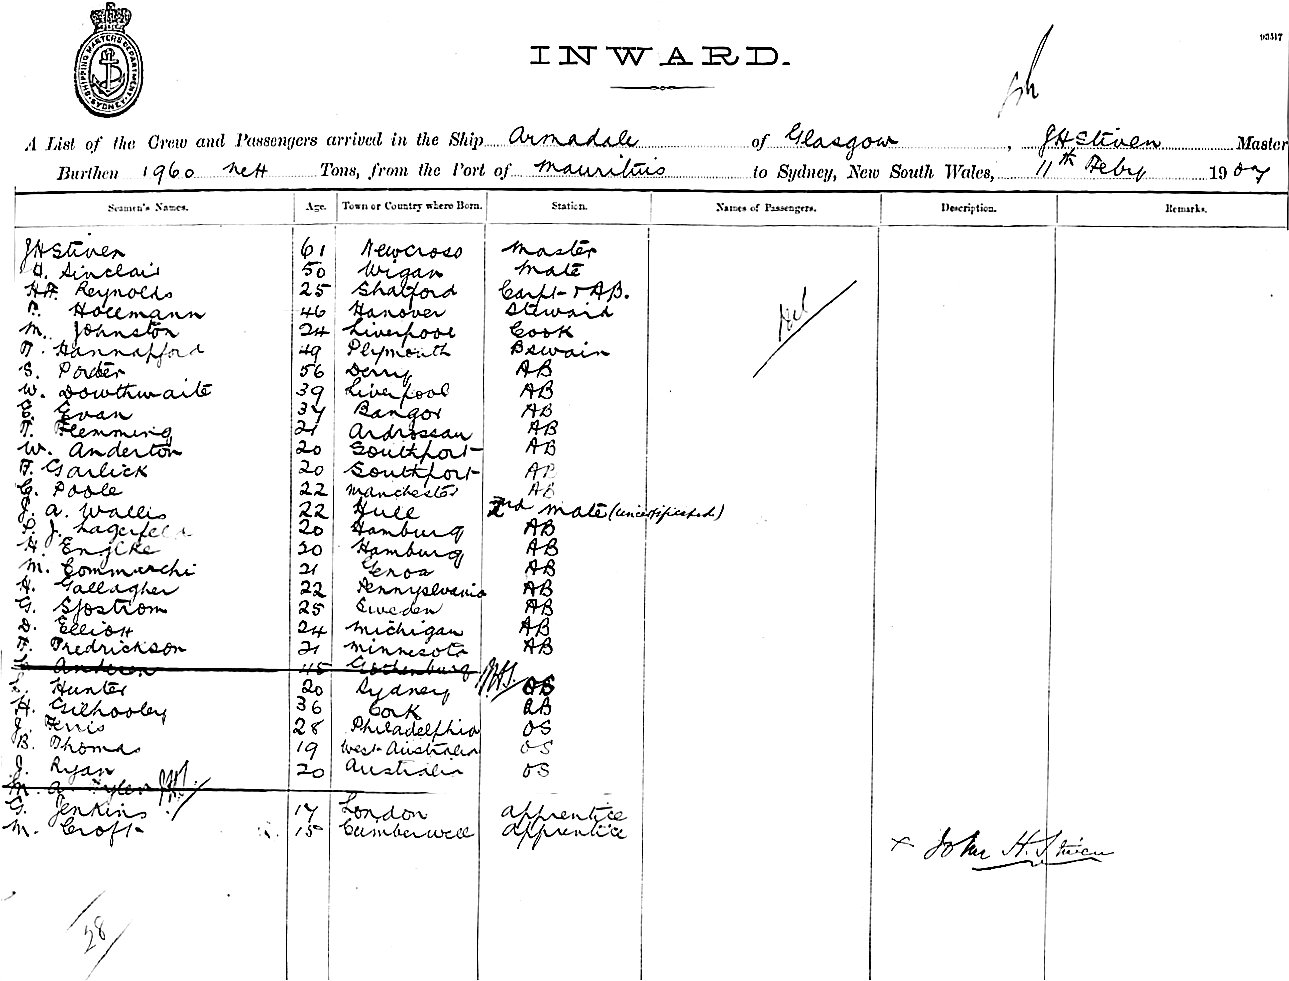 SHIPPING MASTERS DEPARTMENT SYDNEY
INWARD.
A List of the Crew and Passengers arrived in the Ship Armadale of Glasgow, JH Stiven Master
Burthen 1960 nett Tons, from the Port of Mauritius to Sydney, New South Wales, 11th Feby 1907
Seamen's Names. Age. Town or Country where Born. Station. Names of Passengers. Description. Remarks.
JH Stiven 61 Newcross Master
H. Sinclair 50 Wigan Mate
Reynolds 25 Shalford Carpt & AB.
Hollmann 46 Hanover Steward
M. Johnston 24 Liverpool Cook
Hannafford 49 Plymouth Bswain
S. Porter 56 Derry AB
W. Dowthwaite 39 Liverpool AB
E. Evan 37 Bangor AB
Flemming 21 Ardrossan AB
W. Anderton 20 Southport AB
Garlick 20 Southport AB
C. Poole 22 Manchester AB
J. A. Wallis 22 Hull 2nd Mate (uncertificated)
J. Lagerfeld 20 Hamburg AB
H. Engike 20 Hamburg AB
M. Commarchi 21 Genoa AB
H. Gallagher 22 Pennyslvania AB
G. Sjostrom 25 Sweden AB
D. Elliott 24 Michigan AB
F. Fredrickson 21 Minnesota AB
45 Gothenburg JHS.
Hunter 20 Sydney OS
H. Gilhooley 36 Cork AB
J. Ferris 28 Philadelphia OS
B. Thomas 19 West Australia OS
J. Ryan 20 Australia OS
M. A. Tyler
G. Jenkins 17 London apprentice
M. Croft 15 Camberwell apprentice
Nil
x John H. Stiven
28